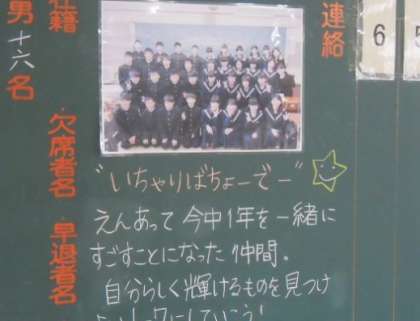 連絡
6
在籍
男十六名
・欠席者名
・早退者名
"いちゃりばちょーでー"
えんあって今中1年を一緒に
すごすことになった仲間。
自分らしく輝けるものを見つけ
にしていこう!